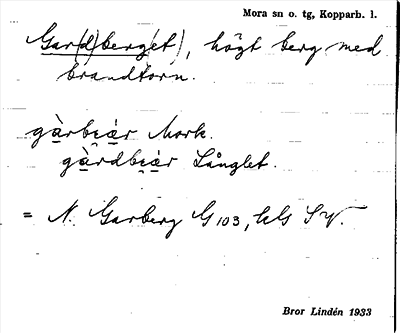 Mora sn o. tg, Kopparb. l.
Gar(d)berg(et), högt berg med
brandtorn.
gàrbɛár Mork.
gàrdbɛár Långlet.
= N. Garberg G 103, hls SV.
Bror Lindén 1933